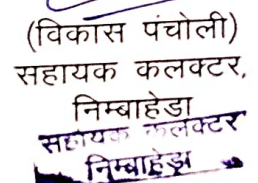 (विकास पंचोली)
सहायक कलक्टर,
निम्बाहेडा
सहायक कलक्टर
निम्बाहेड़ा